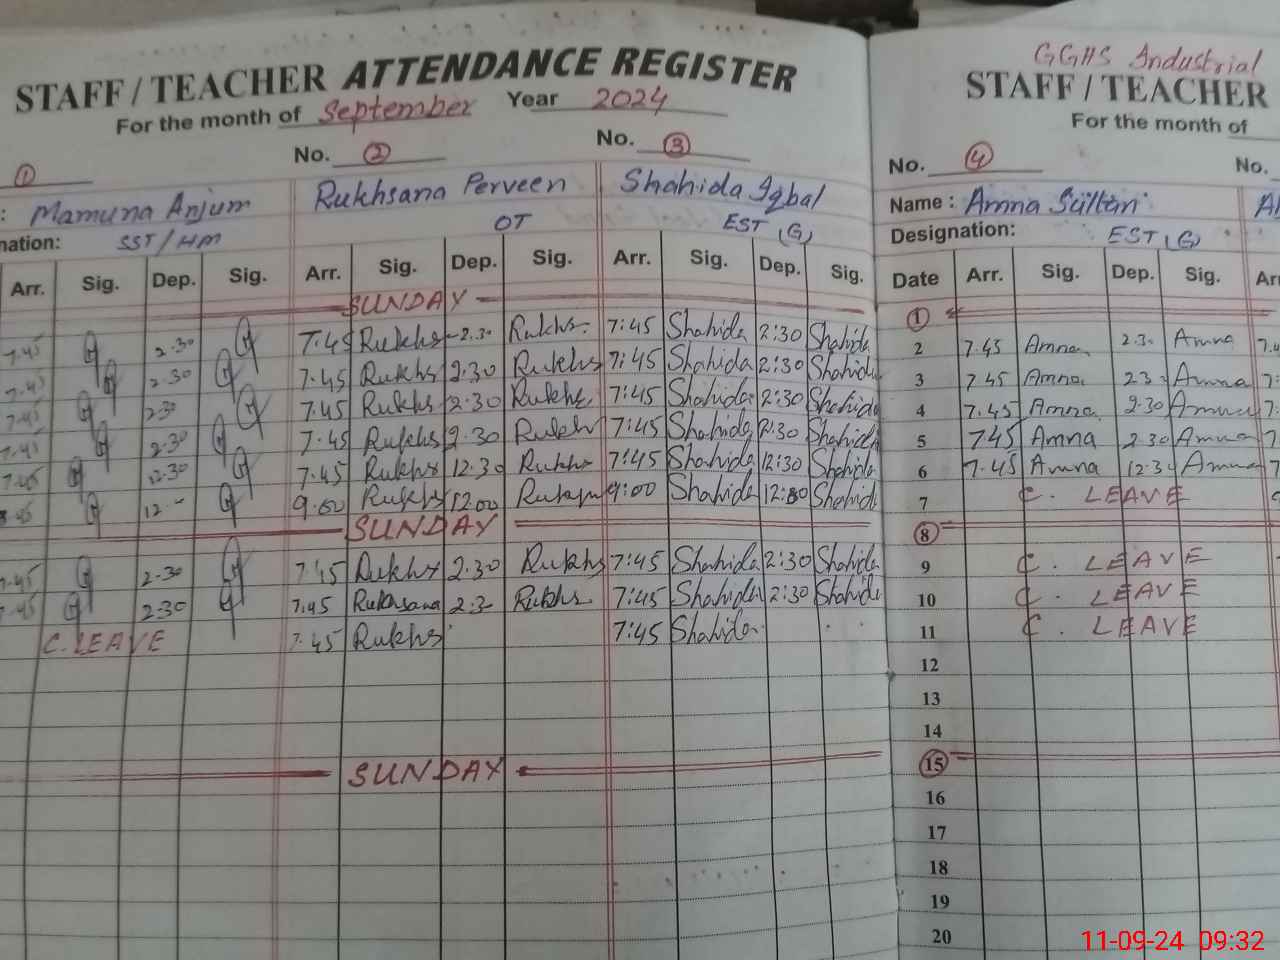 STAFF / TEACHER ATTENDANCE REGISTER
For the month of September Year 2024
① No. ② No. ③
: Mamuna Anjum Rukhsana Perveen Shahida Iqbal
nation: SST/HM OT EST (G)
Arr. Sig. Dep. Sig. Arr. Sig. Dep. Sig. Arr. Sig. Dep. Sig.
SUNDAY
7.45 2.30 7.45 Rukhs 2.30 Rukhs. 7:45 Shahida 2:30 Shahida
7.45 2.30 7.45 Rukhs 2.30 Rukhs 7:45 Shahida 2:30 Shahida
7.45 2.30 7.45 Rukhs 2.30 Rukhs 7:45 Shahida 2:30 Shahida
7.45 2.30 7.45 Rukhs 2.30 Rukhs 7:45 Shahida 2:30 Shahida
7.45 12.30 7.45 Rukhs 12.30 Rukhs 7:45 Shahida 12:30 Shahida
12 9.00 Rukhs 12.00 9:00 Shahida Shahida
SUNDAY
7.45 2.30 7.45 Rukhs 2.30 Rukhs 7:45 Shahida 2:30 Shahida
7.45 2.30 7.45 Rukhsana 2.3 Rukhs. 7:45 Shahida 2:30 Shahida
C. LEAVE 7.45 Rukhs 7:45 Shahida
SUNDAY
GGHS Industrial
STAFF / TEACHER
For the month of
No. ④ No.
Name : Amna Sultan
Designation: EST (G)
Date Arr. Sig. Dep. Sig. Arr
①
2 7.45 Amna 2.30 Amna
3 7.45 Amna 2.3 Amna
4 7.45 Amna 2.30 Amna
5 7.45 Amna 2.30 Amna
6 7.45 Amna 12.3 Amna
7 C. LEAVE
⑧
9 C. LEAVE
10 C. LEAVE
11 C. LEAVE
12
13
14
⑮
16
17
18
19
20
11-09-24 09:32